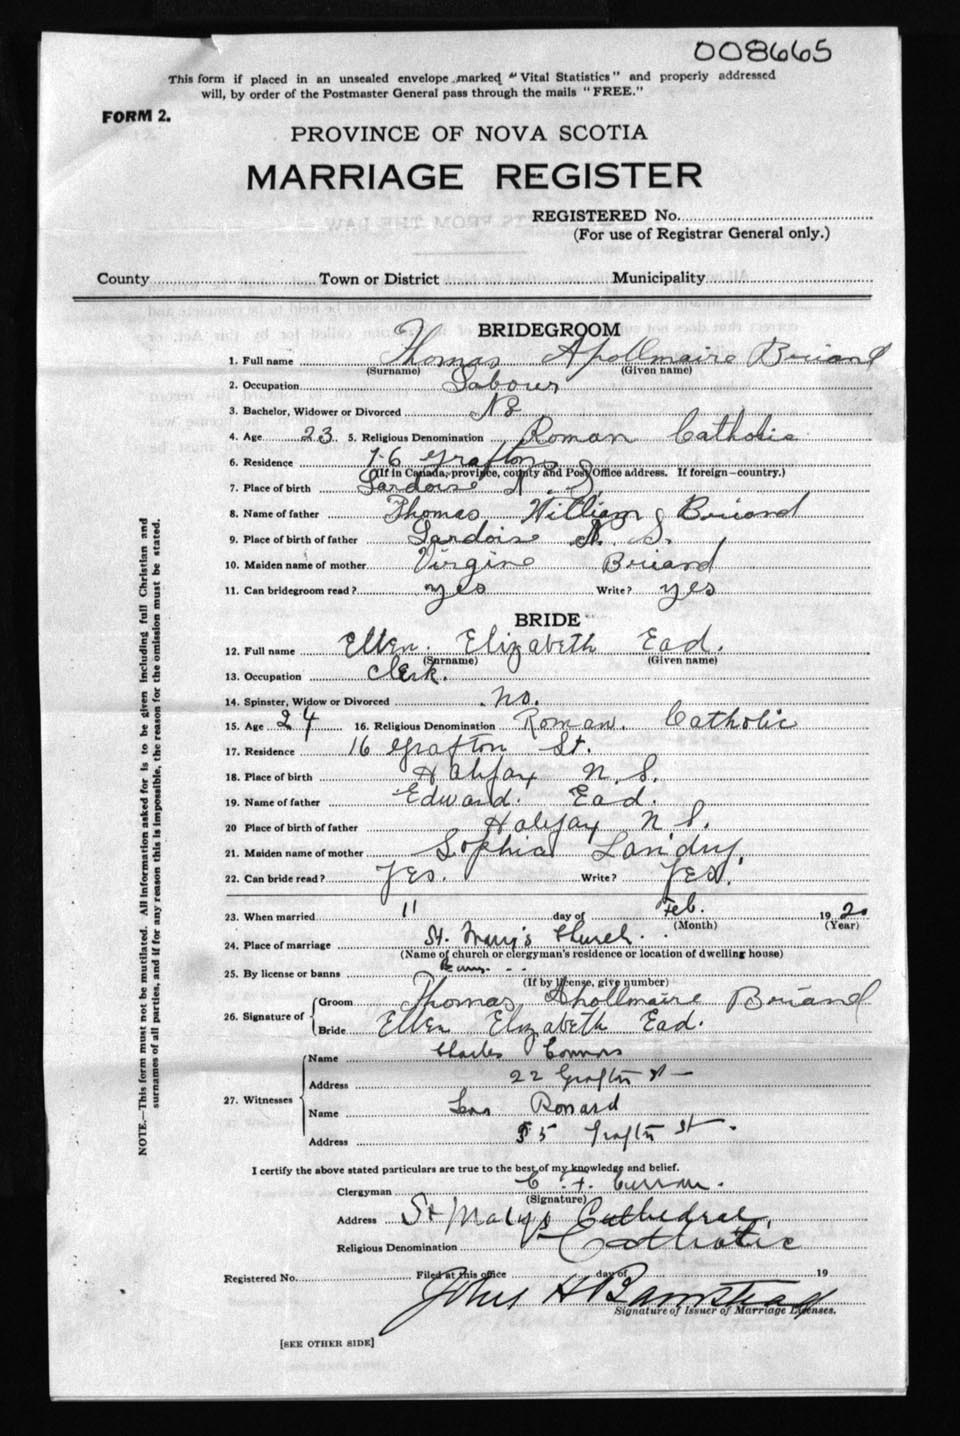 008665
This form if placed in an unsealed envelope marked "Vital Statistics" and properly addressed
will, by order of the Postmaster General pass through the mails "FREE."
FORM 2.
PROVINCE OF NOVA SCOTIA
MARRIAGE REGISTER
REGISTERED No.
(For use of Registrar General only.)
County Town or District Municipality
BRIDEGROOM
1. Full name Thomas Apollmaire Briand
(Surname) (Given name)
2. Occupation Labour
3. Bachelor, Widower or Divorced No
4. Age 23 5. Religious Denomination Roman Catholic
6. Residence 16 Grafton
(If in Canada, province, county and Post Office address. If foreign—country.)
7. Place of birth Lardoise N. S.
8. Name of father Thomas William Briand
9. Place of birth of father Lardoise N. S.
10. Maiden name of mother Virgine Briand
11. Can bridegroom read? yes Write? yes
BRIDE
12. Full name Ellen. Elizabeth Ead.
(Surname) (Given name)
13. Occupation Clerk.
14. Spinster, Widow or Divorced No.
15. Age 24 16. Religious Denomination Roman. Catholic
17. Residence 16 Grafton St.
18. Place of birth Halifax N. S.
19. Name of father Edward. Ead.
20 Place of birth of father Halifax N. S.
21. Maiden name of mother Sophia Landry.
22. Can bride read? Yes. Write? Yes.
23. When married 11 day of Feb. 1920
(Month) (Year)
24. Place of marriage St. Mary's Church.
(Name of church or clergyman's residence or location of dwelling house)
25. By license or banns
(If by license, give number)
26. Signature of Groom Thomas Apollmaire Briand
Bride Ellen Elizabeth Ead.
27. Witnesses
Name Charles Connors
Address 22 Grafton St
Name Ronard
Address 55 Grafton St.
I certify the above stated particulars are true to the best of my knowledge and belief.
Clergyman C. F. Curran.
(Signature)
Address St Marys Cathedral,
Religious Denomination Catholic
Registered No. Filed at this office day of 19
John H Barnstead
Signature of Issuer of Marriage Licenses.
[SEE OTHER SIDE]
NOTE.—This form must not be mutilated. All information asked for is to be given including full Christian and
surnames of all parties, and if for any reason this is impossible, the reason for the omission must be stated.